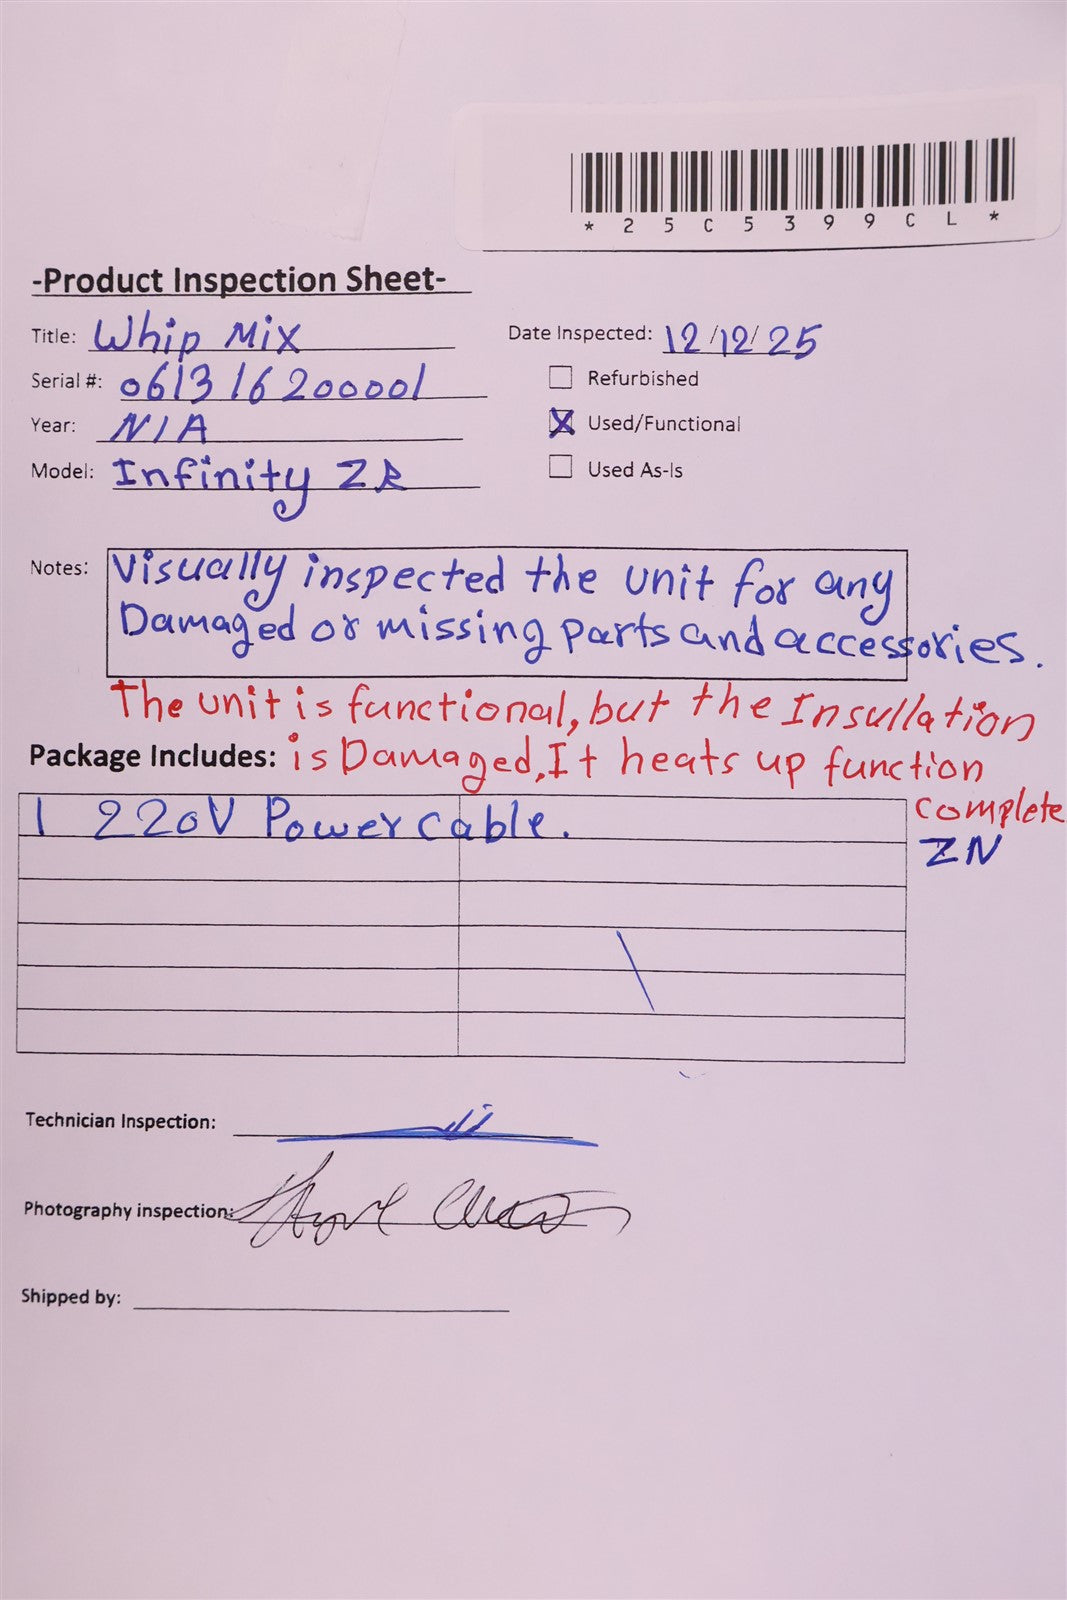 *25C5399CL*
-Product Inspection Sheet-
Title: Whip Mix
Date Inspected: 12/12/25
Serial #: 061316200001
Refurbished
Year: N/A
Used/Functional
Model: Infinity ZR
Used As-Is
Notes: Visually inspected the unit for any
Damaged or missing parts and accessories.
The unit is functional, but the Insullation
Package Includes: is Damaged, It heats up function
complete
1 220V Power cable.
ZN
Technician Inspection:
Photography inspection:
Shipped by: